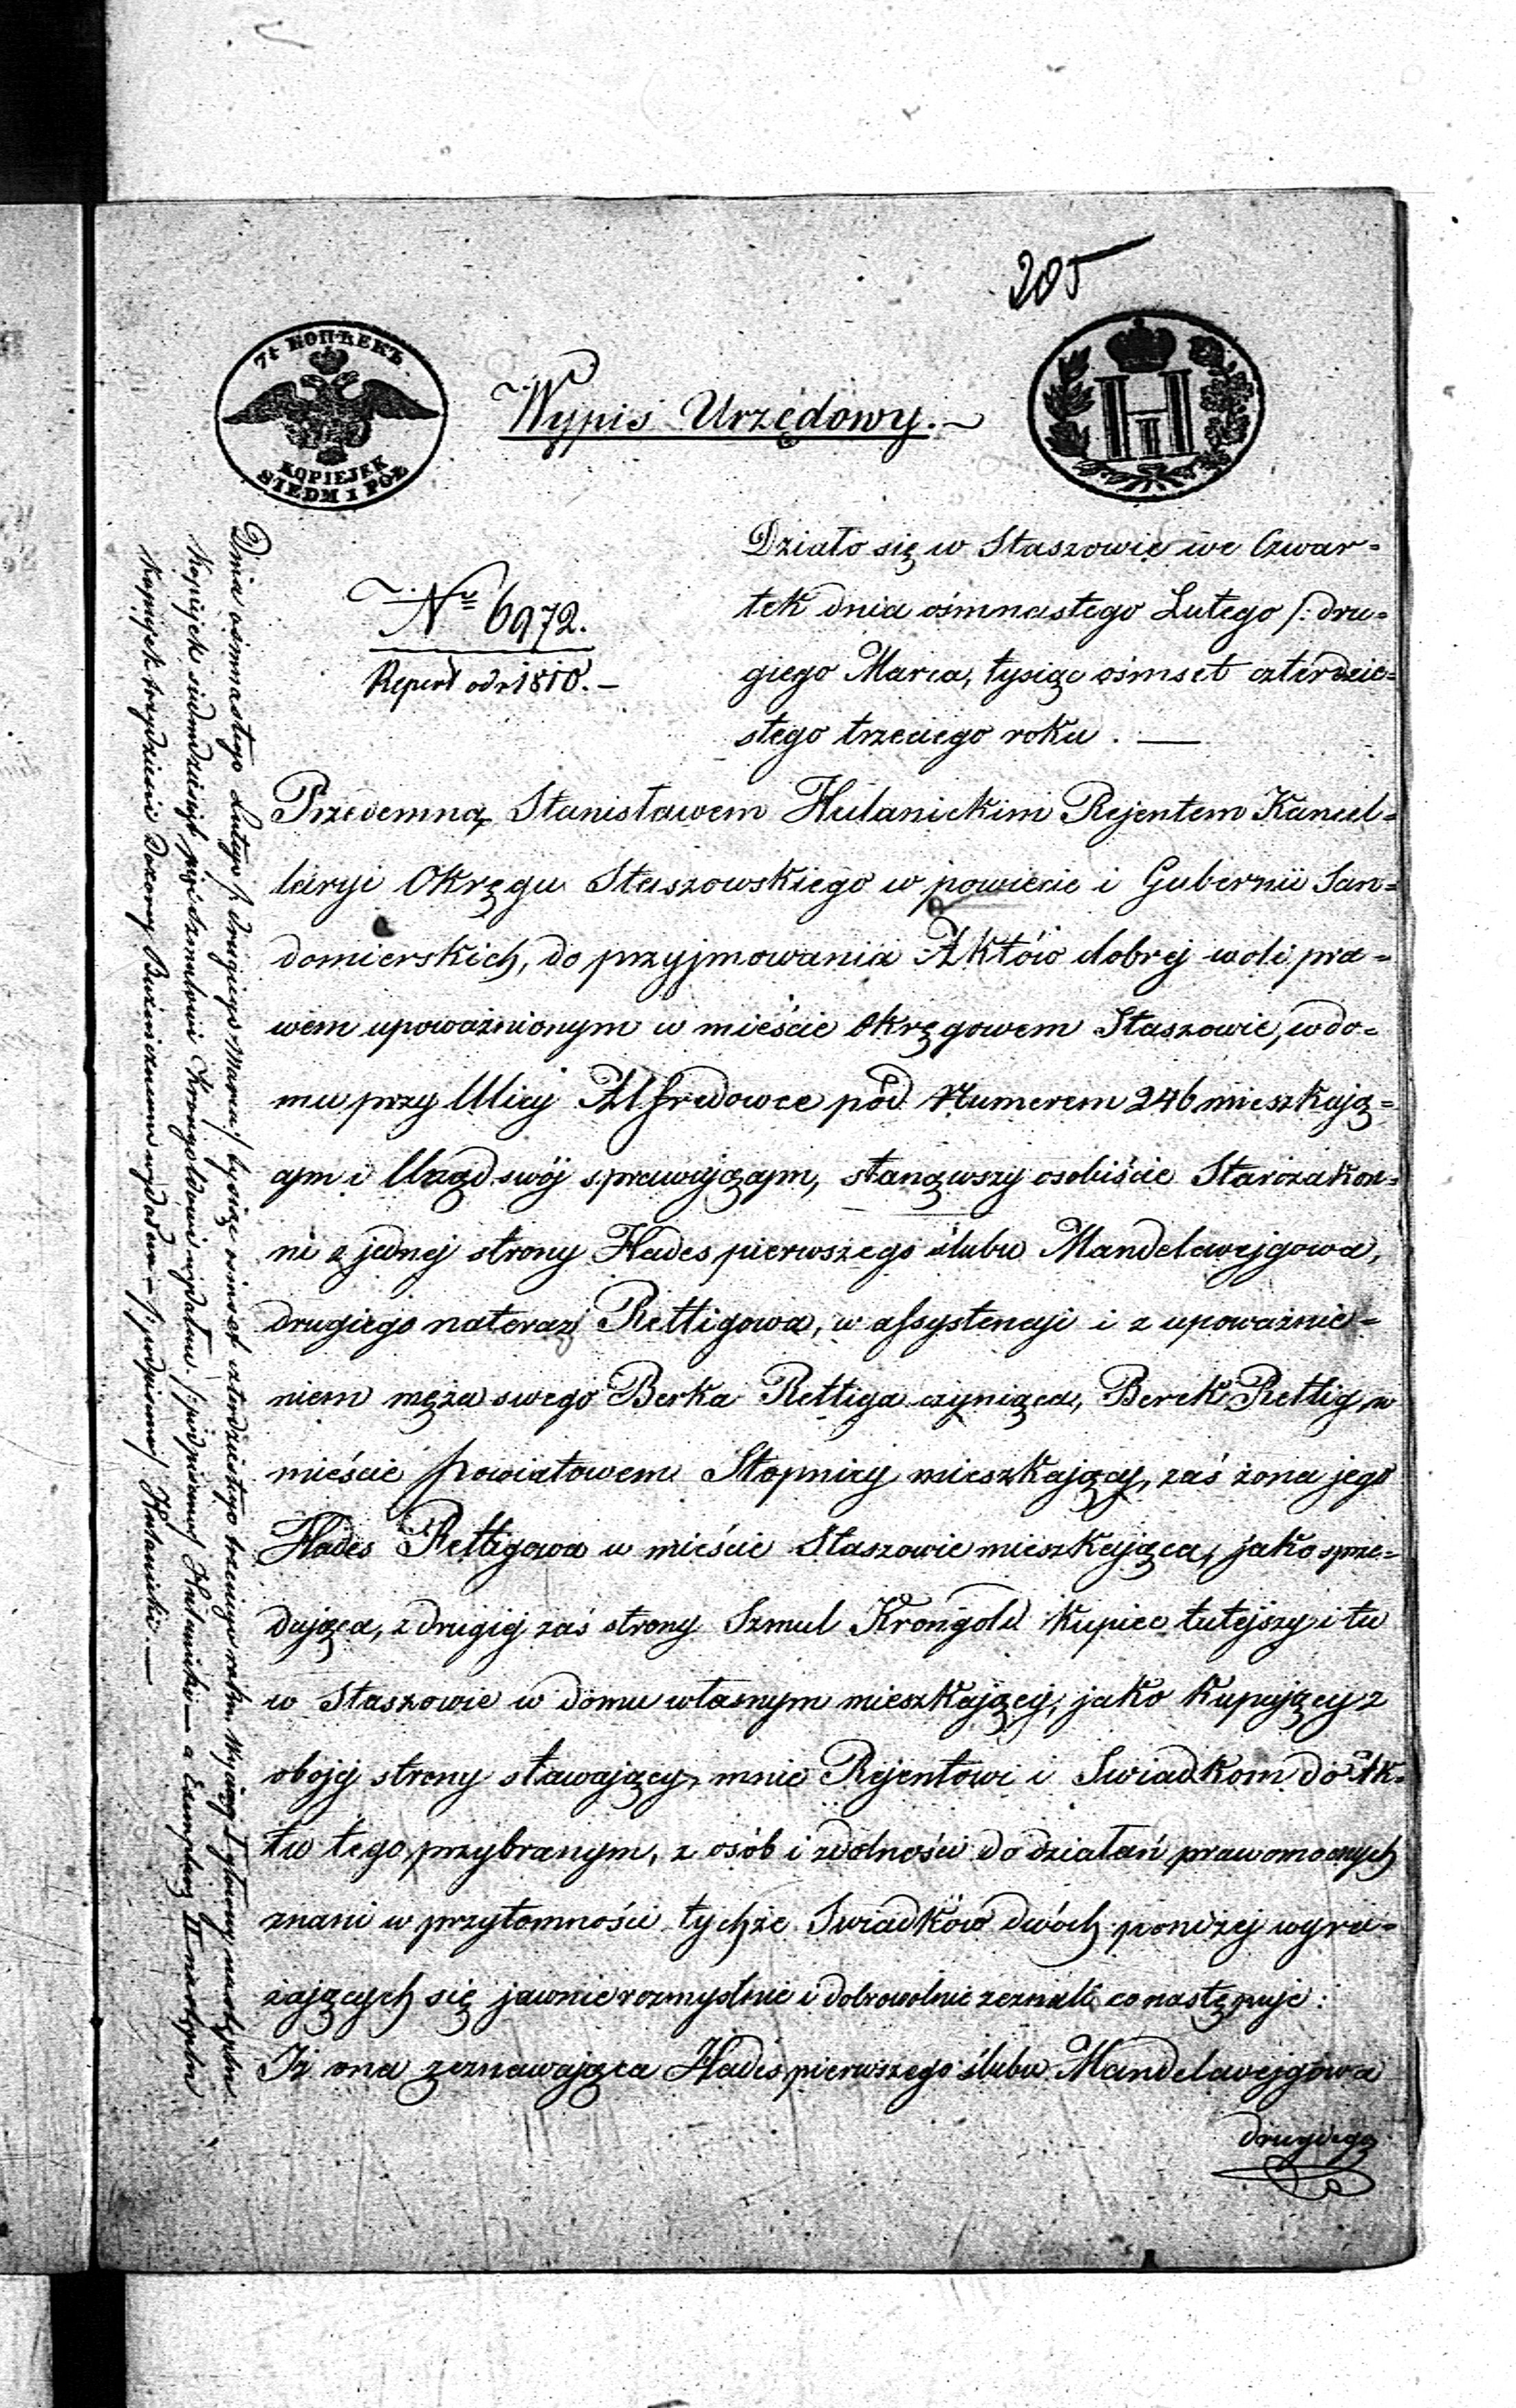 205
7½ КОПѢЕКЪ
KOPIEJEK
SIEDM I PÓŁ
Wypis Urzędowy.
N 6972.
Repert od r 1810.
Działo się w Staszowie we Czwar=
tek dnia ośmnastego Lutego /: dru=
giego Marca, tysiąc ośmset czterdzie=
stego trzeciego roku.
Przedemną Stanisławem Hulanickim Rejentem Kancel=
laryi Okręgu Staszowskiego w powiecie i Gubernii San=
domierskich, do przyjmowania Aktów dobrej woli pra=
wem upoważnionym w mieście Okręgowem Staszowie, w do=
mu przy Ulicy Alfredowce pod Numerem 246 mieszkają=
cym i Urząd swój sprawującym, stanąwszy osobiście Starozakon=
ni z jednej strony Hades pierwszego ślubu Mandelawejgowa,
drugiego nateraz Rettigowa, w assystencyi i z upoważnie=
niem męża swego Berka Rettiga czyniąca, Berek Rettig w
mieście powiatowem Stopnicy mieszkający, zaś żona jego
Hades Rettigowa w mieście Staszowie mieszkająca, jako sprze=
dająca, z drugiej zaś strony Szmul Krongold Kupiec tutejszy i tu
w Staszowie w domu własnym mieszkający, jako kupujący z
obojej strony stawający, mnie Rejentowi i Swiadkom do Ak=
tu tego przybranym, z osób i zdolności do działań prawomocnych
znani w przytomności tychże Swiadków dwóch poniżej wyra=
żających się jawnie rozmyślnie i dobrowolnie zeznali co następuje:
Iż ona zeznawająca Hades pierwszego ślubu Mandelawejgowa
drugiego
Dnia ośmnastego Lutego /: drugiego Marca :/ tysiąc ośmset czterdziestego trzeciego roku Wyciąg I główny na stęplu
Kopiejek siedmdziesiąt pięć Szmulowi Krongoldowi wydałem /: podpisano / Hulanicki — a Exemplarz II na stęplu
Kopiejek trzydzieści Dozorowy Bożniczemu wydałem — /: podpisano/ Hulanicki.—